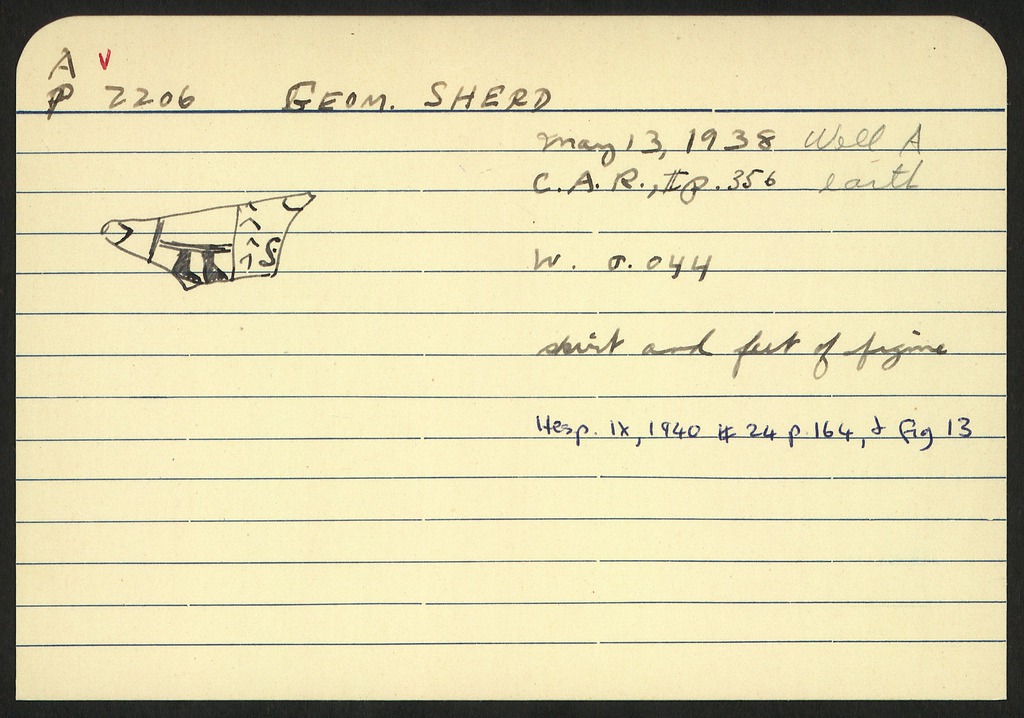 A v
P 2206 GEOM. SHERD
May 13, 1938 Well A
C.A.R., II p. 356 earth
W. 0.044
skirt and feet of figure
Hesp. IX, 1940 # 24 p 164, & Fig 13